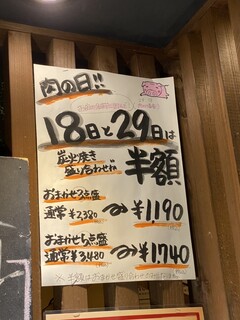 肉の日!!
18日と29日は
炭火焼き
盛り合わせが
半額
おまかせ3点盛
通常 ¥2,380 → ¥1,190
おまかせ5点盛
通常 ¥3,480 → ¥1,740